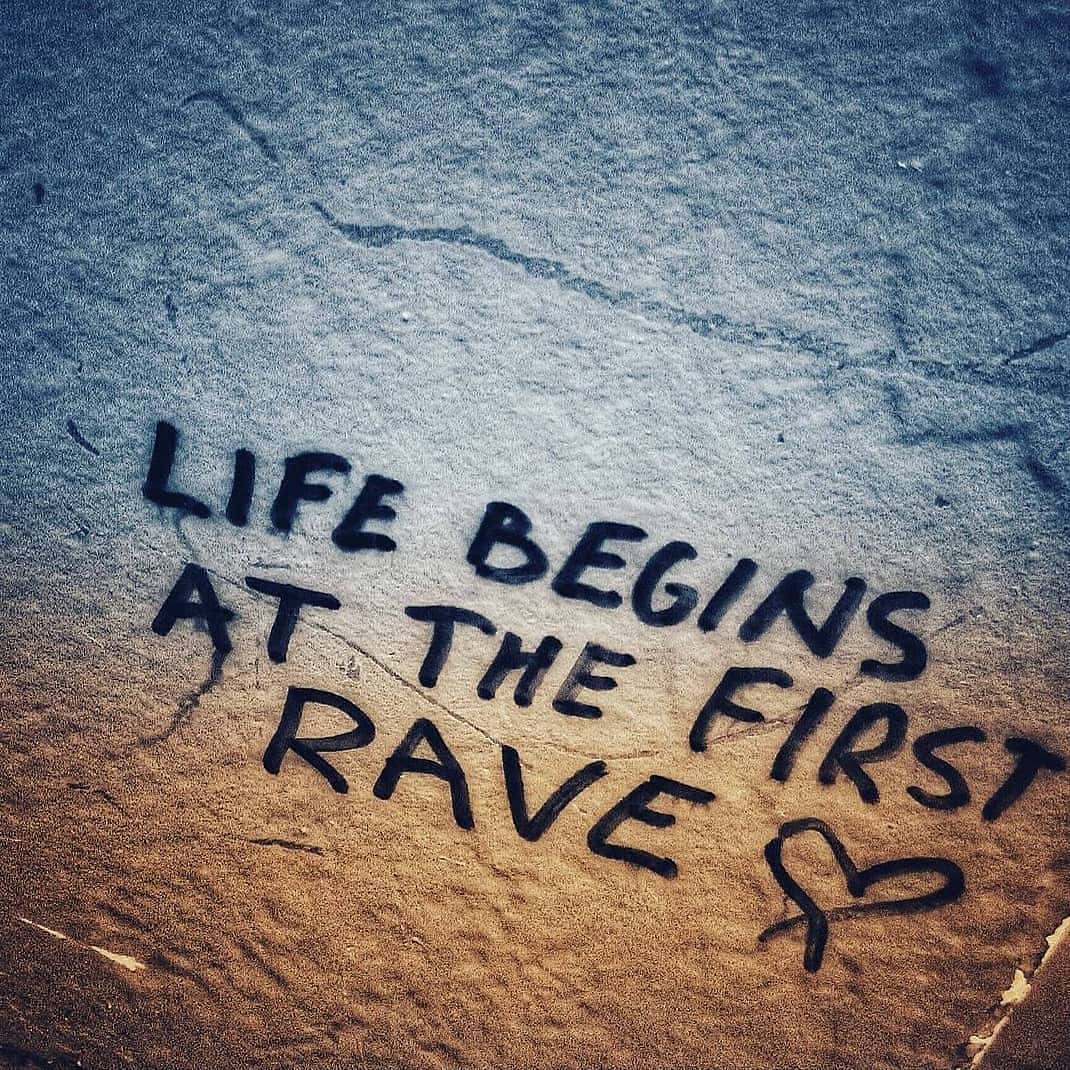 LIFE BEGINS
AT THE FIRST
RAVE